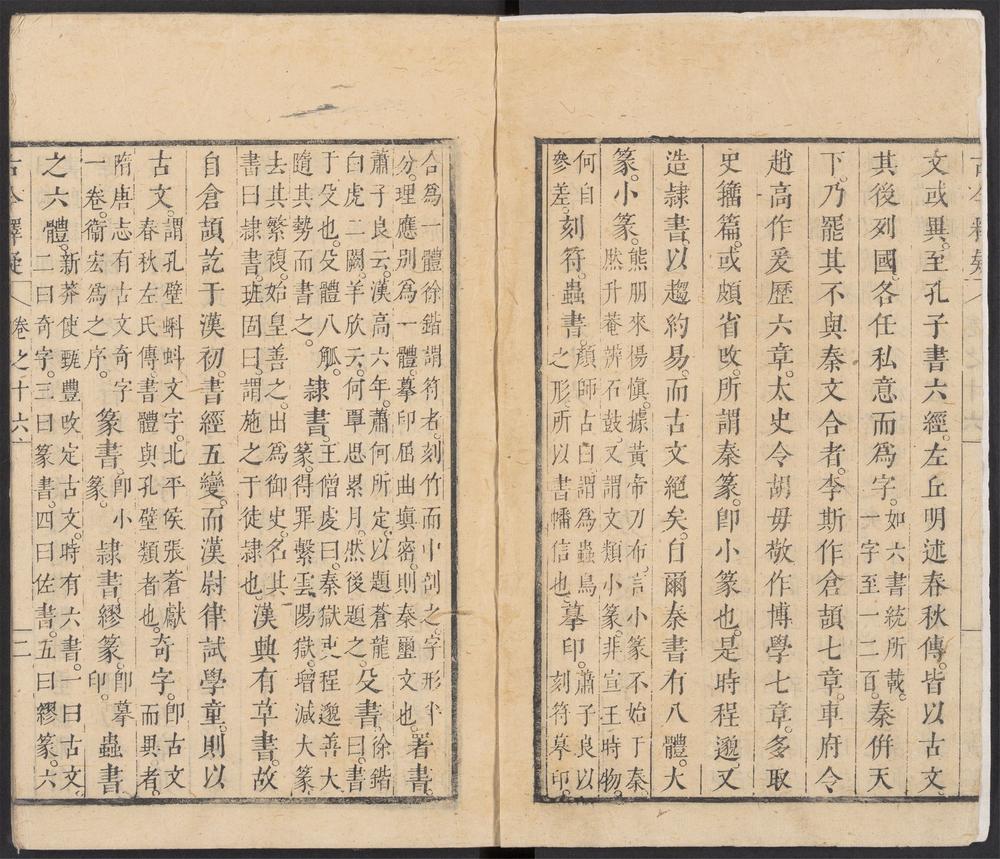 古今釋疑
文或異。至孔子書六經。左丘明述春秋傳。皆以古文。
其後列國。各任私意而爲字。如六書統所載。一字至一二百。秦併天
下。乃罷其不與秦文合者。李斯作倉頡七章。車府令
趙高作爰歷六章。太史令胡毋敬作博學七章。多取
史籀篇。或頗省改。所謂秦篆。卽小篆也。是時程邈又
造隷書以趨約易。而古文絕矣。自爾秦書有八體。大
篆。小篆。熊朋來楊慎。據黃帝刀布。言小篆不始于秦。然升菴辨石鼓。又謂文類小篆。非宣王時物。
何自參差。刻符。蟲書。顏師古曰。謂爲蟲鳥之形。所以書幡信也。摹印。蕭子良以刻符摹印。
合爲一體。徐鍇謂符者。刻竹而中剖之。字形半分。理應別爲一體。摹印屈曲塡密。則秦璽文也。署書。
蕭子良云。漢高六年。蕭何所定。以題蒼龍白虎二闕。羊欣云。何覃思累月。然後題之。殳書。徐鍇曰。書
于殳也。殳體八觚。隨其勢而書之。隷書。王僧虔曰。秦獄吏程邈善大篆。得罪繫雲陽獄。增減大篆。
去其繁複。始皇善之。出爲御史。名其書曰隷書。班固曰。謂施之于徒隷也。漢興有草書。故
自倉頡訖于漢初。書經五變。而漢尉律試學童。則以
古文。謂孔壁蝌蚪文字。北平侯張蒼獻春秋左氏傳。書體與孔壁類者也。奇字。卽古文而異者。
隋唐志有古文奇字一卷。衞宏爲之序。篆書。卽小篆。隷書繆篆。卽摹印。蟲書
之六體。新莽使甄豐改定古文。時有六書。一曰古文。二曰奇字。三曰篆書。四曰佐書。五曰繆篆。六
古今釋疑 卷之十六 三